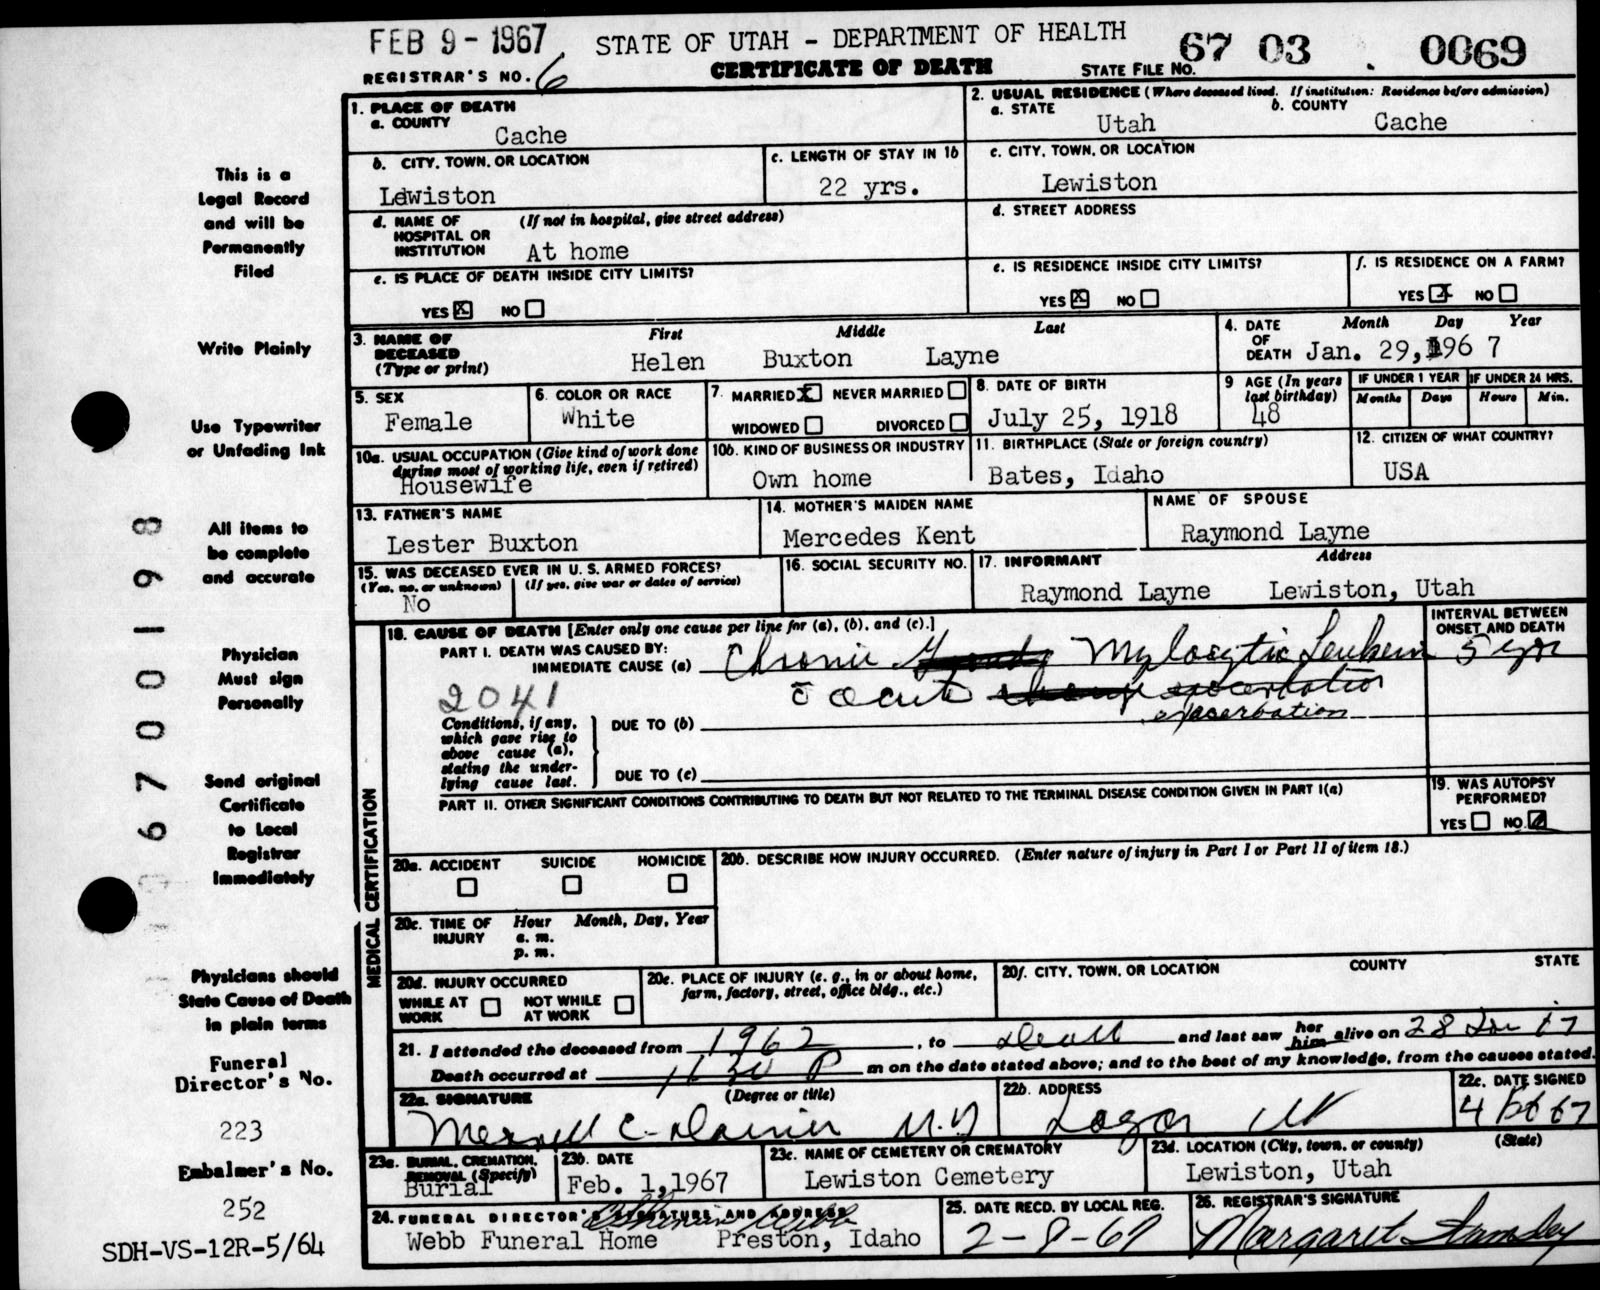 FEB 9 - 1967
STATE OF UTAH - DEPARTMENT OF HEALTH
67 03 0069
REGISTRAR'S NO. 6
CERTIFICATE OF DEATH
STATE FILE NO.
1. PLACE OF DEATH
a. COUNTY
Cache
2. USUAL RESIDENCE (Where deceased lived. If institution: Residence before admission)
a. STATE
Utah
b. COUNTY
Cache
b. CITY, TOWN, OR LOCATION
Lewiston
c. LENGTH OF STAY IN 1b
22 yrs.
c. CITY, TOWN, OR LOCATION
Lewiston
d. NAME OF HOSPITAL OR INSTITUTION
(If not in hospital, give street address)
At home
d. STREET ADDRESS
e. IS PLACE OF DEATH INSIDE CITY LIMITS?
YES X NO
e. IS RESIDENCE INSIDE CITY LIMITS?
YES X NO
f. IS RESIDENCE ON A FARM?
YES X NO
3. NAME OF DECEASED
(Type or print)
First Middle Last
Helen Buxton Layne
4. DATE OF DEATH
Month Day Year
Jan. 29, 1967
5. SEX
Female
6. COLOR OR RACE
White
7. MARRIED X NEVER MARRIED
WIDOWED DIVORCED
8. DATE OF BIRTH
July 25, 1918
9 AGE (In years last birthday)
48
IF UNDER 1 YEAR
Months Days
IF UNDER 24 HRS.
Hours Min.
10a. USUAL OCCUPATION (Give kind of work done during most of working life, even if retired)
Housewife
10b. KIND OF BUSINESS OR INDUSTRY
Own home
11. BIRTHPLACE (State or foreign country)
Bates, Idaho
12. CITIZEN OF WHAT COUNTRY?
USA
13. FATHER'S NAME
Lester Buxton
14. MOTHER'S MAIDEN NAME
Mercedes Kent
NAME OF SPOUSE
Raymond Layne
15. WAS DECEASED EVER IN U. S. ARMED FORCES?
(Yes, no, or unknown) (If yes, give war or dates of service)
No
16. SOCIAL SECURITY NO.
17. INFORMANT
Address
Raymond Layne Lewiston, Utah
MEDICAL CERTIFICATION
18. CAUSE OF DEATH [Enter only one cause per line for (a), (b), and (c).]
INTERVAL BETWEEN ONSET AND DEATH
PART I. DEATH WAS CAUSED BY:
IMMEDIATE CAUSE (a) Chronic Mylocytic Leukem 5 yrs
2041
c̄ acute exacerbation
Conditions, if any, which gave rise to above cause (a), stating the underlying cause last.
DUE TO (b)
DUE TO (c)
PART II. OTHER SIGNIFICANT CONDITIONS CONTRIBUTING TO DEATH BUT NOT RELATED TO THE TERMINAL DISEASE CONDITION GIVEN IN PART I(a)
19. WAS AUTOPSY PERFORMED?
YES NO
20a. ACCIDENT SUICIDE HOMICIDE
20b. DESCRIBE HOW INJURY OCCURRED. (Enter nature of injury in Part I or Part II of item 18.)
20c. TIME OF INJURY
Hour Month, Day, Year
a. m.
p. m.
20d. INJURY OCCURRED
WHILE AT WORK NOT WHILE AT WORK
20e. PLACE OF INJURY (e. g., in or about home, farm, factory, street, office bldg., etc.)
20f. CITY, TOWN, OR LOCATION COUNTY STATE
21. I attended the deceased from 1962, to Death and last saw her him alive on 28 Jan 67
Death occurred at 1130 P m on the date stated above; and to the best of my knowledge, from the causes stated.
22a. SIGNATURE (Degree or title)
Merrill C. M.D
22b. ADDRESS
Logan Ut
22c. DATE SIGNED
4 Feb 67
23a. BURIAL, CREMATION, REMOVAL (Specify)
Burial
23b. DATE
Feb. 1, 1967
23c. NAME OF CEMETERY OR CREMATORY
Lewiston Cemetery
23d. LOCATION (City, town, or county) (State)
Lewiston, Utah
24. FUNERAL DIRECTOR'S SIGNATURE AND ADDRESS
Webb
Webb Funeral Home Preston, Idaho
25. DATE RECD. BY LOCAL REG.
2-8-67
26. REGISTRAR'S SIGNATURE
Margaret
This is a
Legal Record
and will be
Permanently
Filed
Write Plainly
Use Typewriter
or Unfading Ink
All items to
be complete
and accurate
Physician
Must sign
Personally
Send original
Certificate
to Local
Registrar
Immediately
Physicians should
State Cause of Death
in plain terms
Funeral
Director's No.
223
Embalmer's No.
252
SDH-VS-12R-5/64
67 00198